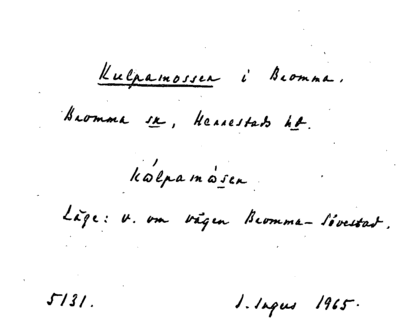 Kulpamossen i Bromma.
Bromma sn, Herrestads hd.
kὼlpamὼsen
Läge: v. om vägen Bromma-Sövestad.
5131. I. Ingers 1965.